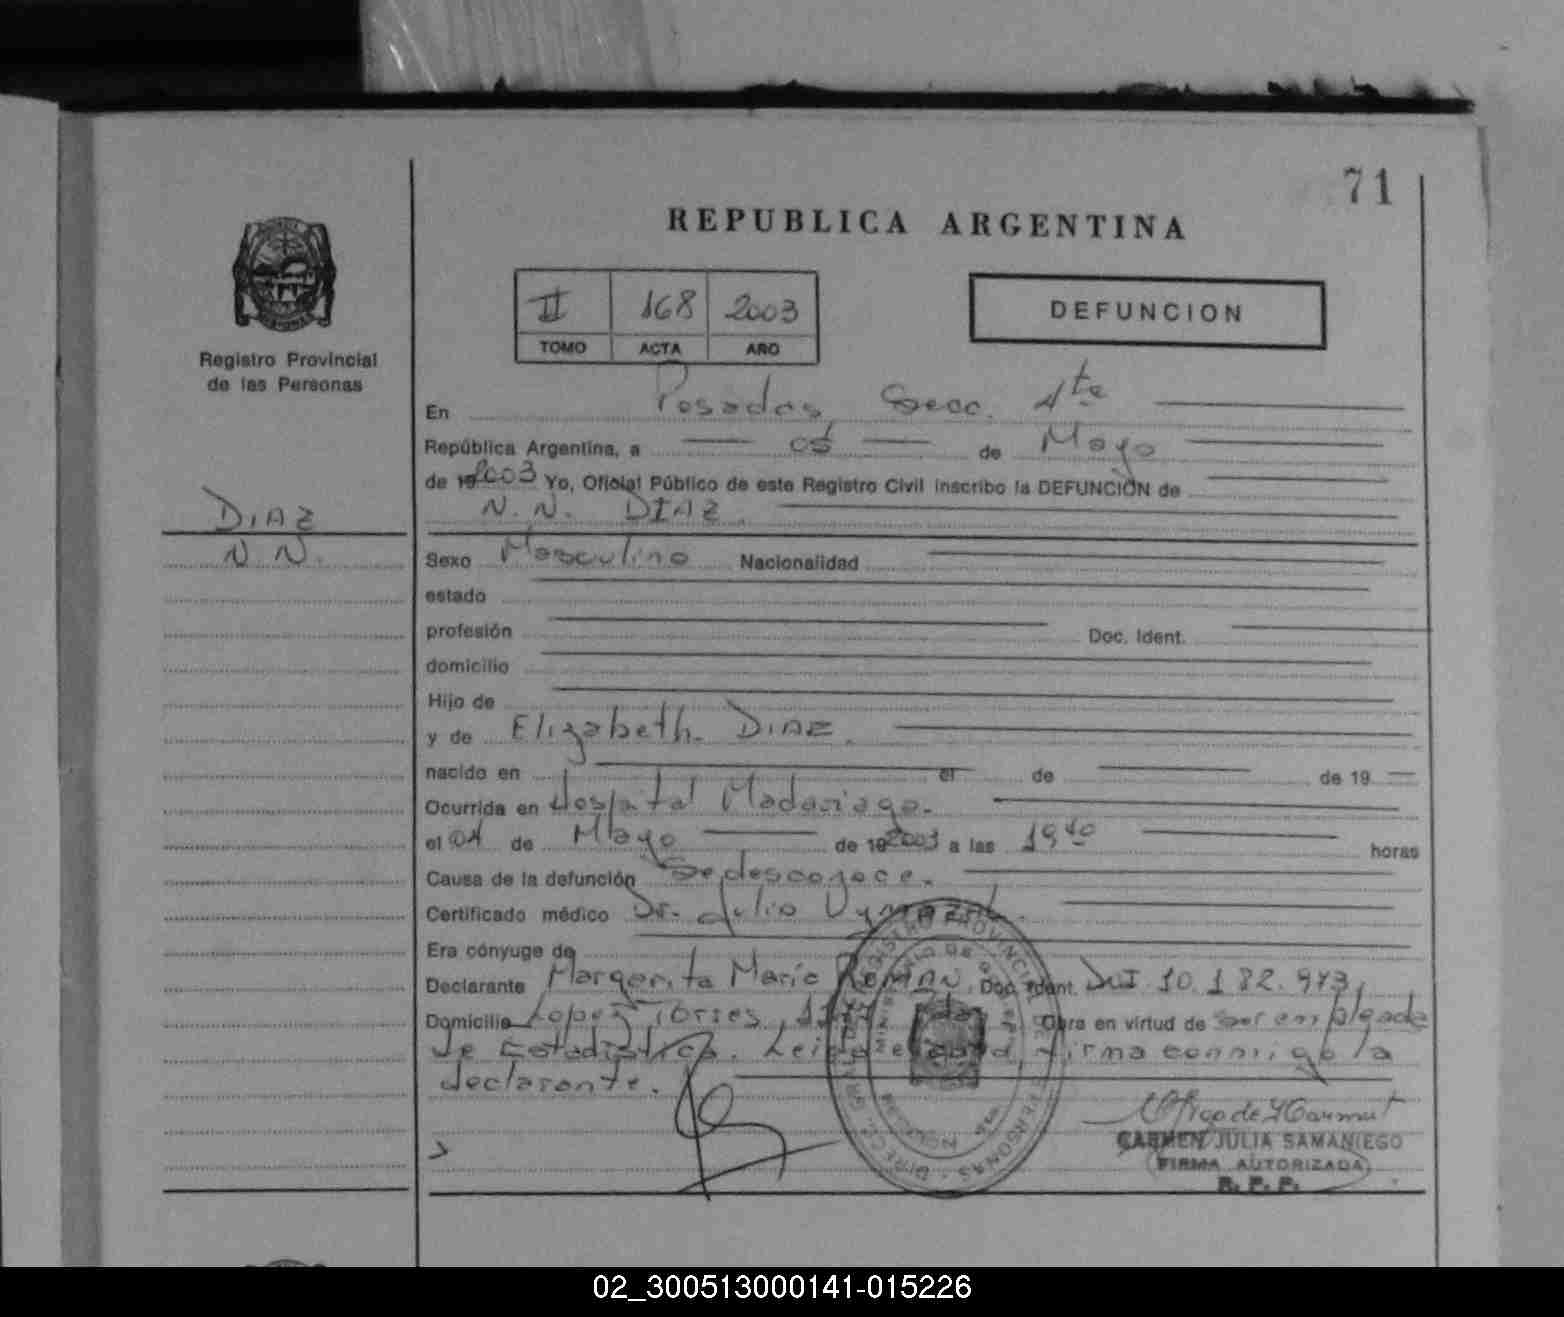 71
REPUBLICA ARGENTINA
II 168 2003
TOMO ACTA AÑO
DEFUNCION
Registro Provincial
de las Personas
En Posadas Secc. 1te
República Argentina, a 05 de Mayo
de 192003 Yo, Oficial Público de este Registro Civil inscribo la DEFUNCIÓN de
N.N. DIAZ.
DIAZ
N.N.
Sexo Masculino Nacionalidad
estado
profesión Doc. Ident.
domicilio
Hijo de
y de Elizabeth. DIAZ.
nacido en el de de 19
Ocurrida en Hospital Madariaga.
el 04 de Mayo de 192003 a las 19 40 horas
Causa de la defunción Se desconoce.
Certificado médico Dr. Julio
Era cónyuge de
Declarante Margarita Maria ROMAN. Doc. Ident. DNI 10.182.973,
Domicilio Lopez Torres, Obra en virtud de ser emplgada
de Estadistica. Leida el firma conmigo la
declarante.
CARMEN JULIA SAMANIEGO
FIRMA AUTORIZADA
R. P. P.
02_300513000141-015226